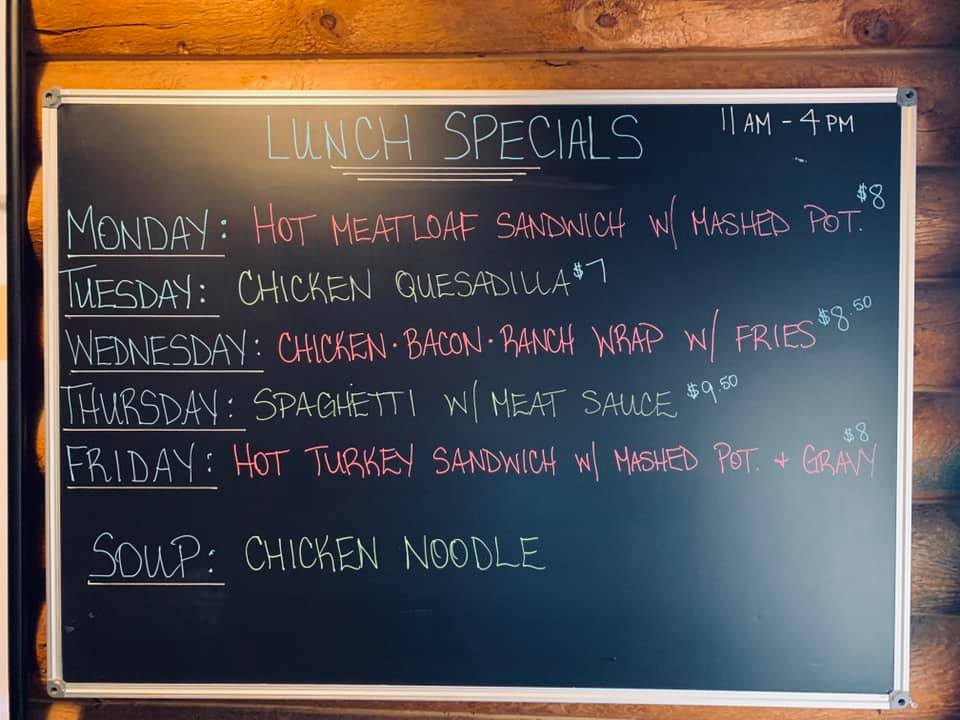 LUNCH SPECIALS 11 AM - 4 PM
MONDAY: HOT MEATLOAF SANDWICH W/ MASHED POT. $8
TUESDAY: CHICKEN QUESADILLA $7
WEDNESDAY: CHICKEN·BACON·RANCH WRAP W/ FRIES $8.50
THURSDAY: SPAGHETTI W/ MEAT SAUCE $9.50
FRIDAY: HOT TURKEY SANDWICH W/ MASHED POT. + GRAVY $8
SOUP: CHICKEN NOODLE